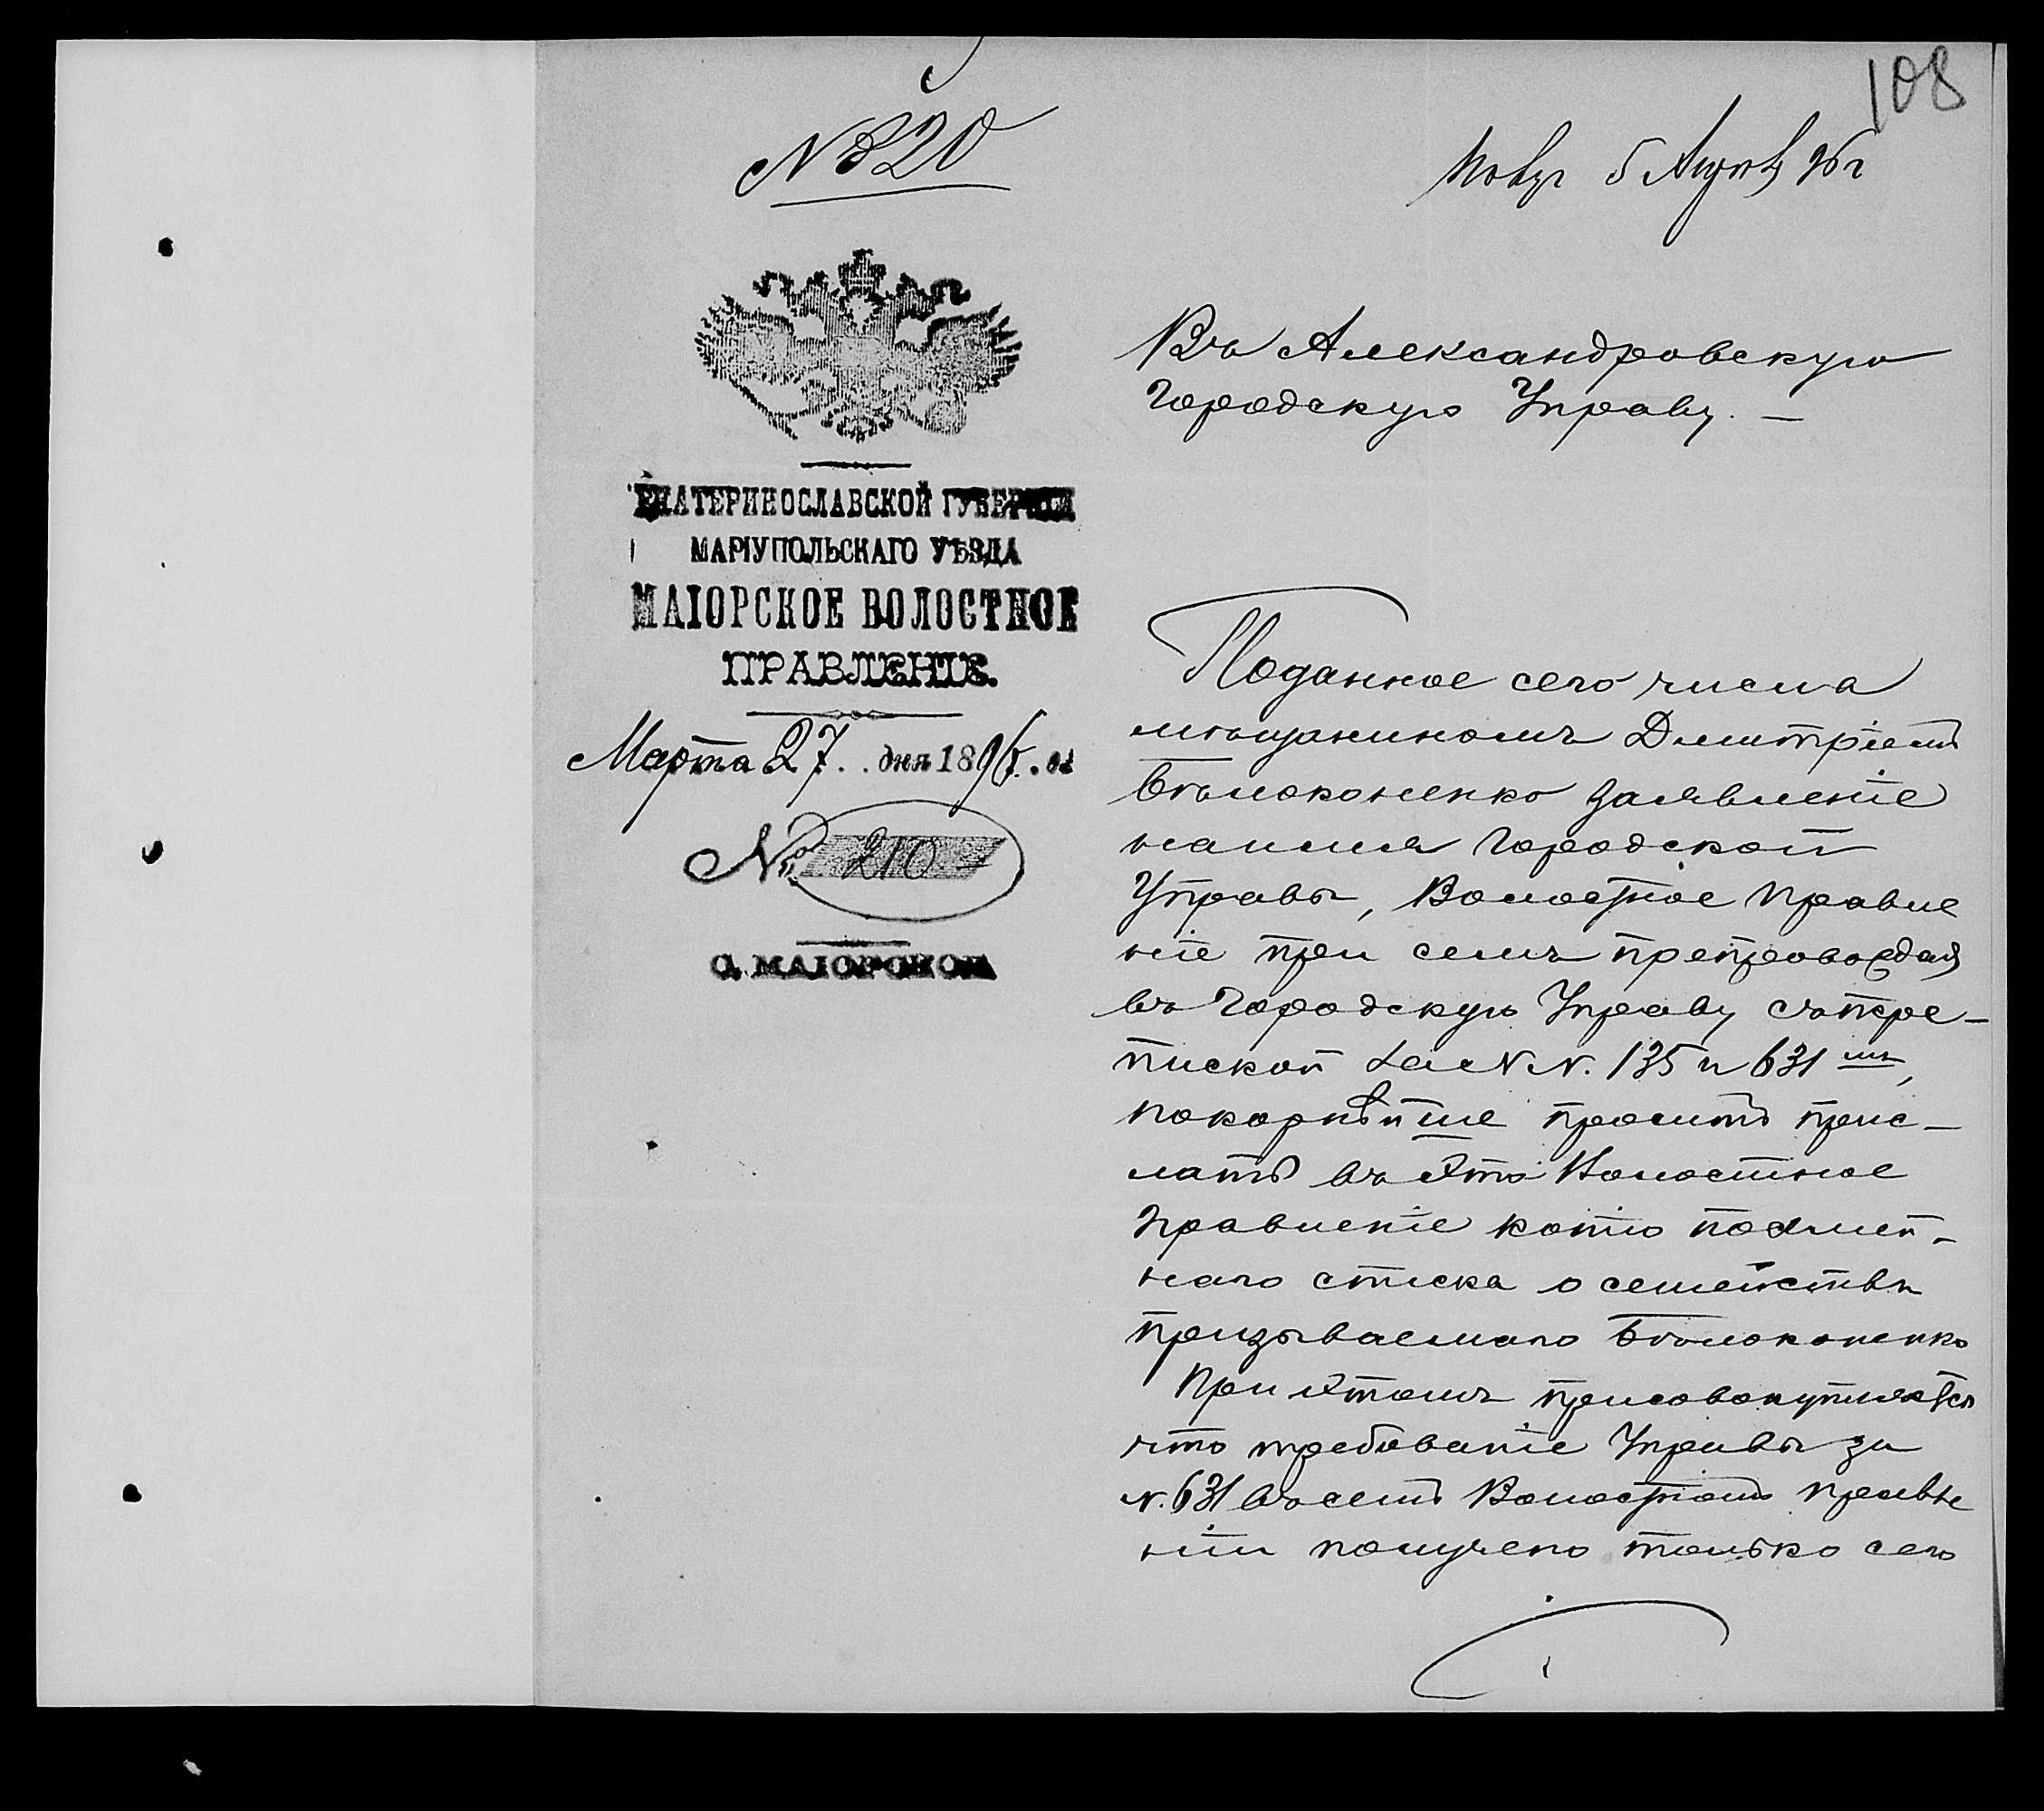 108
N 820
5 Апр 96 г
ЕКАТЕРИНОСЛАВСКОЙ ГУБЕРНІИ
МАРІУПОЛЬСКАГО УѢЗДА
МАІОРСКОЕ ВОЛОСТНОЕ
ПРАВЛЕНІЕ.
Марта 27. дня 1896.
№ 210
С. МАІОРСКОЕ
Въ Александровскую
Городскую Управу. —
Поданное сего числа
мѣщаниномъ Дмитріемъ
Бѣлоконенко заявленіе
на имя Городской
Управы, Волостное Правле
ніе при семъ препровождая
въ Городскую Управу съ пере-
пиской за N N. 135 и 631 мъ,
покорнѣйше проситъ прис-
лать въ это Волостное
Правленіе копію посемей-
наго списка о семействѣ
призываемаго Бѣлоконенко
При этомъ присовокупляется
что требованіе Управы за
N. 631 въ семъ Волостномъ Правле
ніи получено только сего